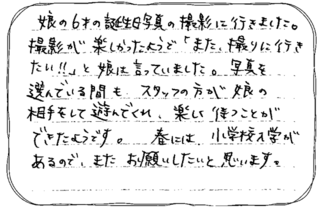 娘の6才の誕生日写真の撮影に行きました。
撮影が楽しかったようで「また、撮りに行き
たい!!」と娘は言っていました。写真を
選んでいる間も、スタッフの方が娘の
相手をして遊んでくれ、楽しく待つことが
できたようです。 春には、小学校入学が
あるので、またお願いしたいと思います。